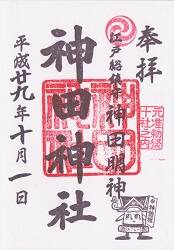 奉拝
元准勅祭
十社之内
江戸総鎮守 神田明神
神田神社
平成廿九年十月一日